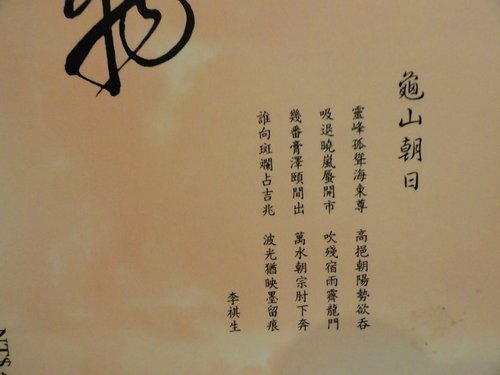 龜山朝日
靈峰孤聳海東尊 高挹朝陽勢欲吞
吸退曉嵐蜃開市 吹殘宿雨霽龍門
幾番膏澤頤間出 萬水朝宗肘下奔
誰向斑斕占吉兆 波光猶映墨留痕
李祺生